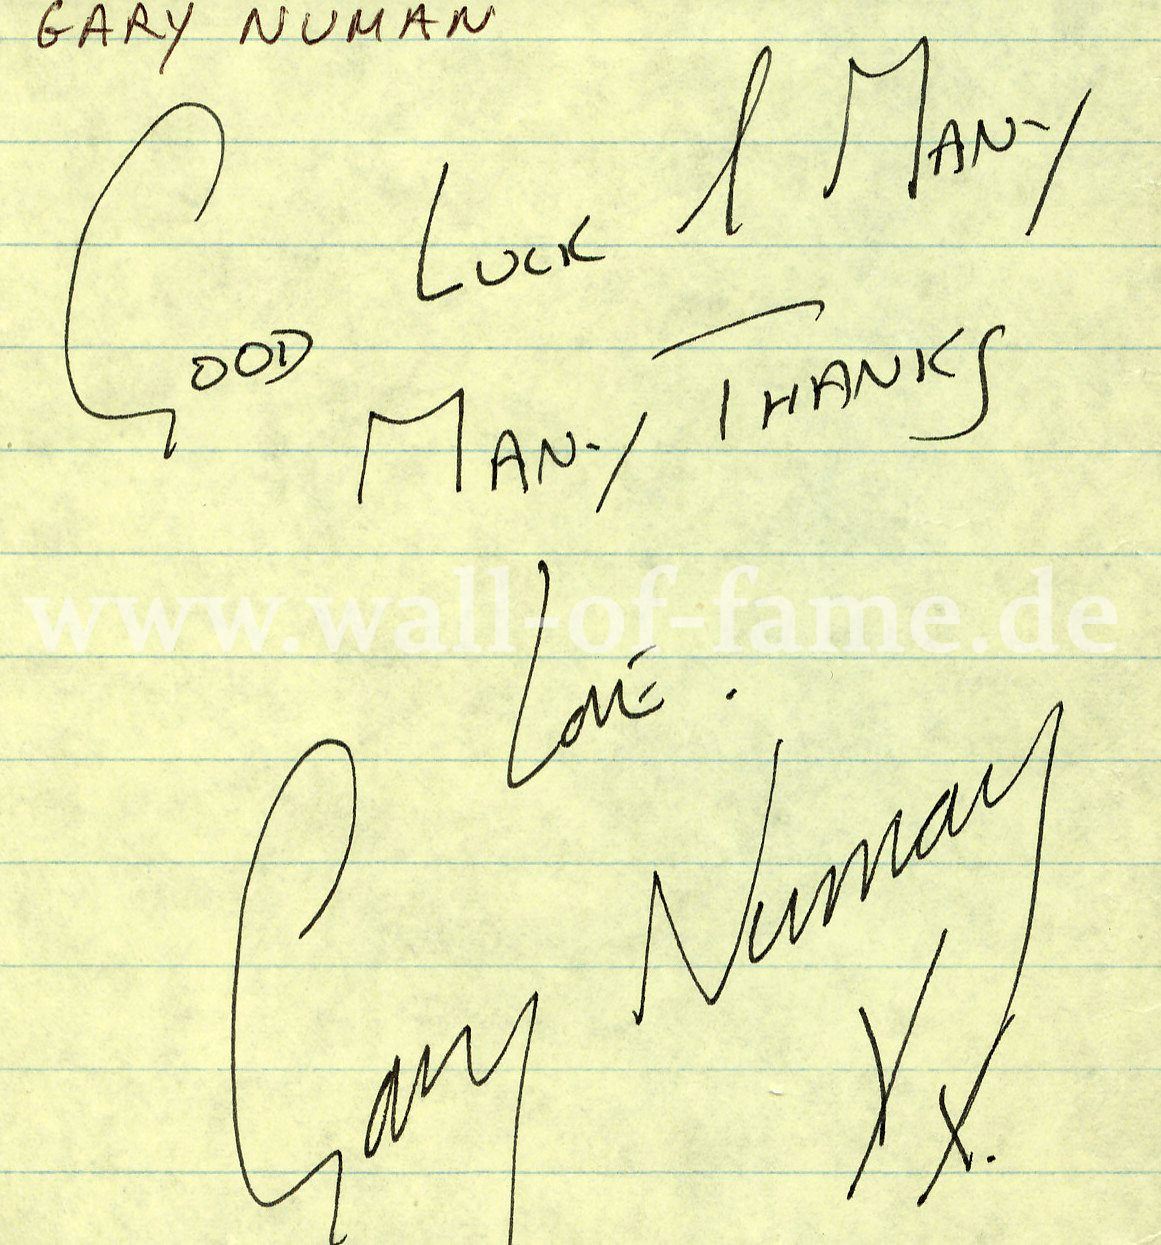 GARY NUMAN
GOOD LUCK & MANY
MANY THANKS
www.wall-of-fame.de
LOVE.
Gary Numan
XX.